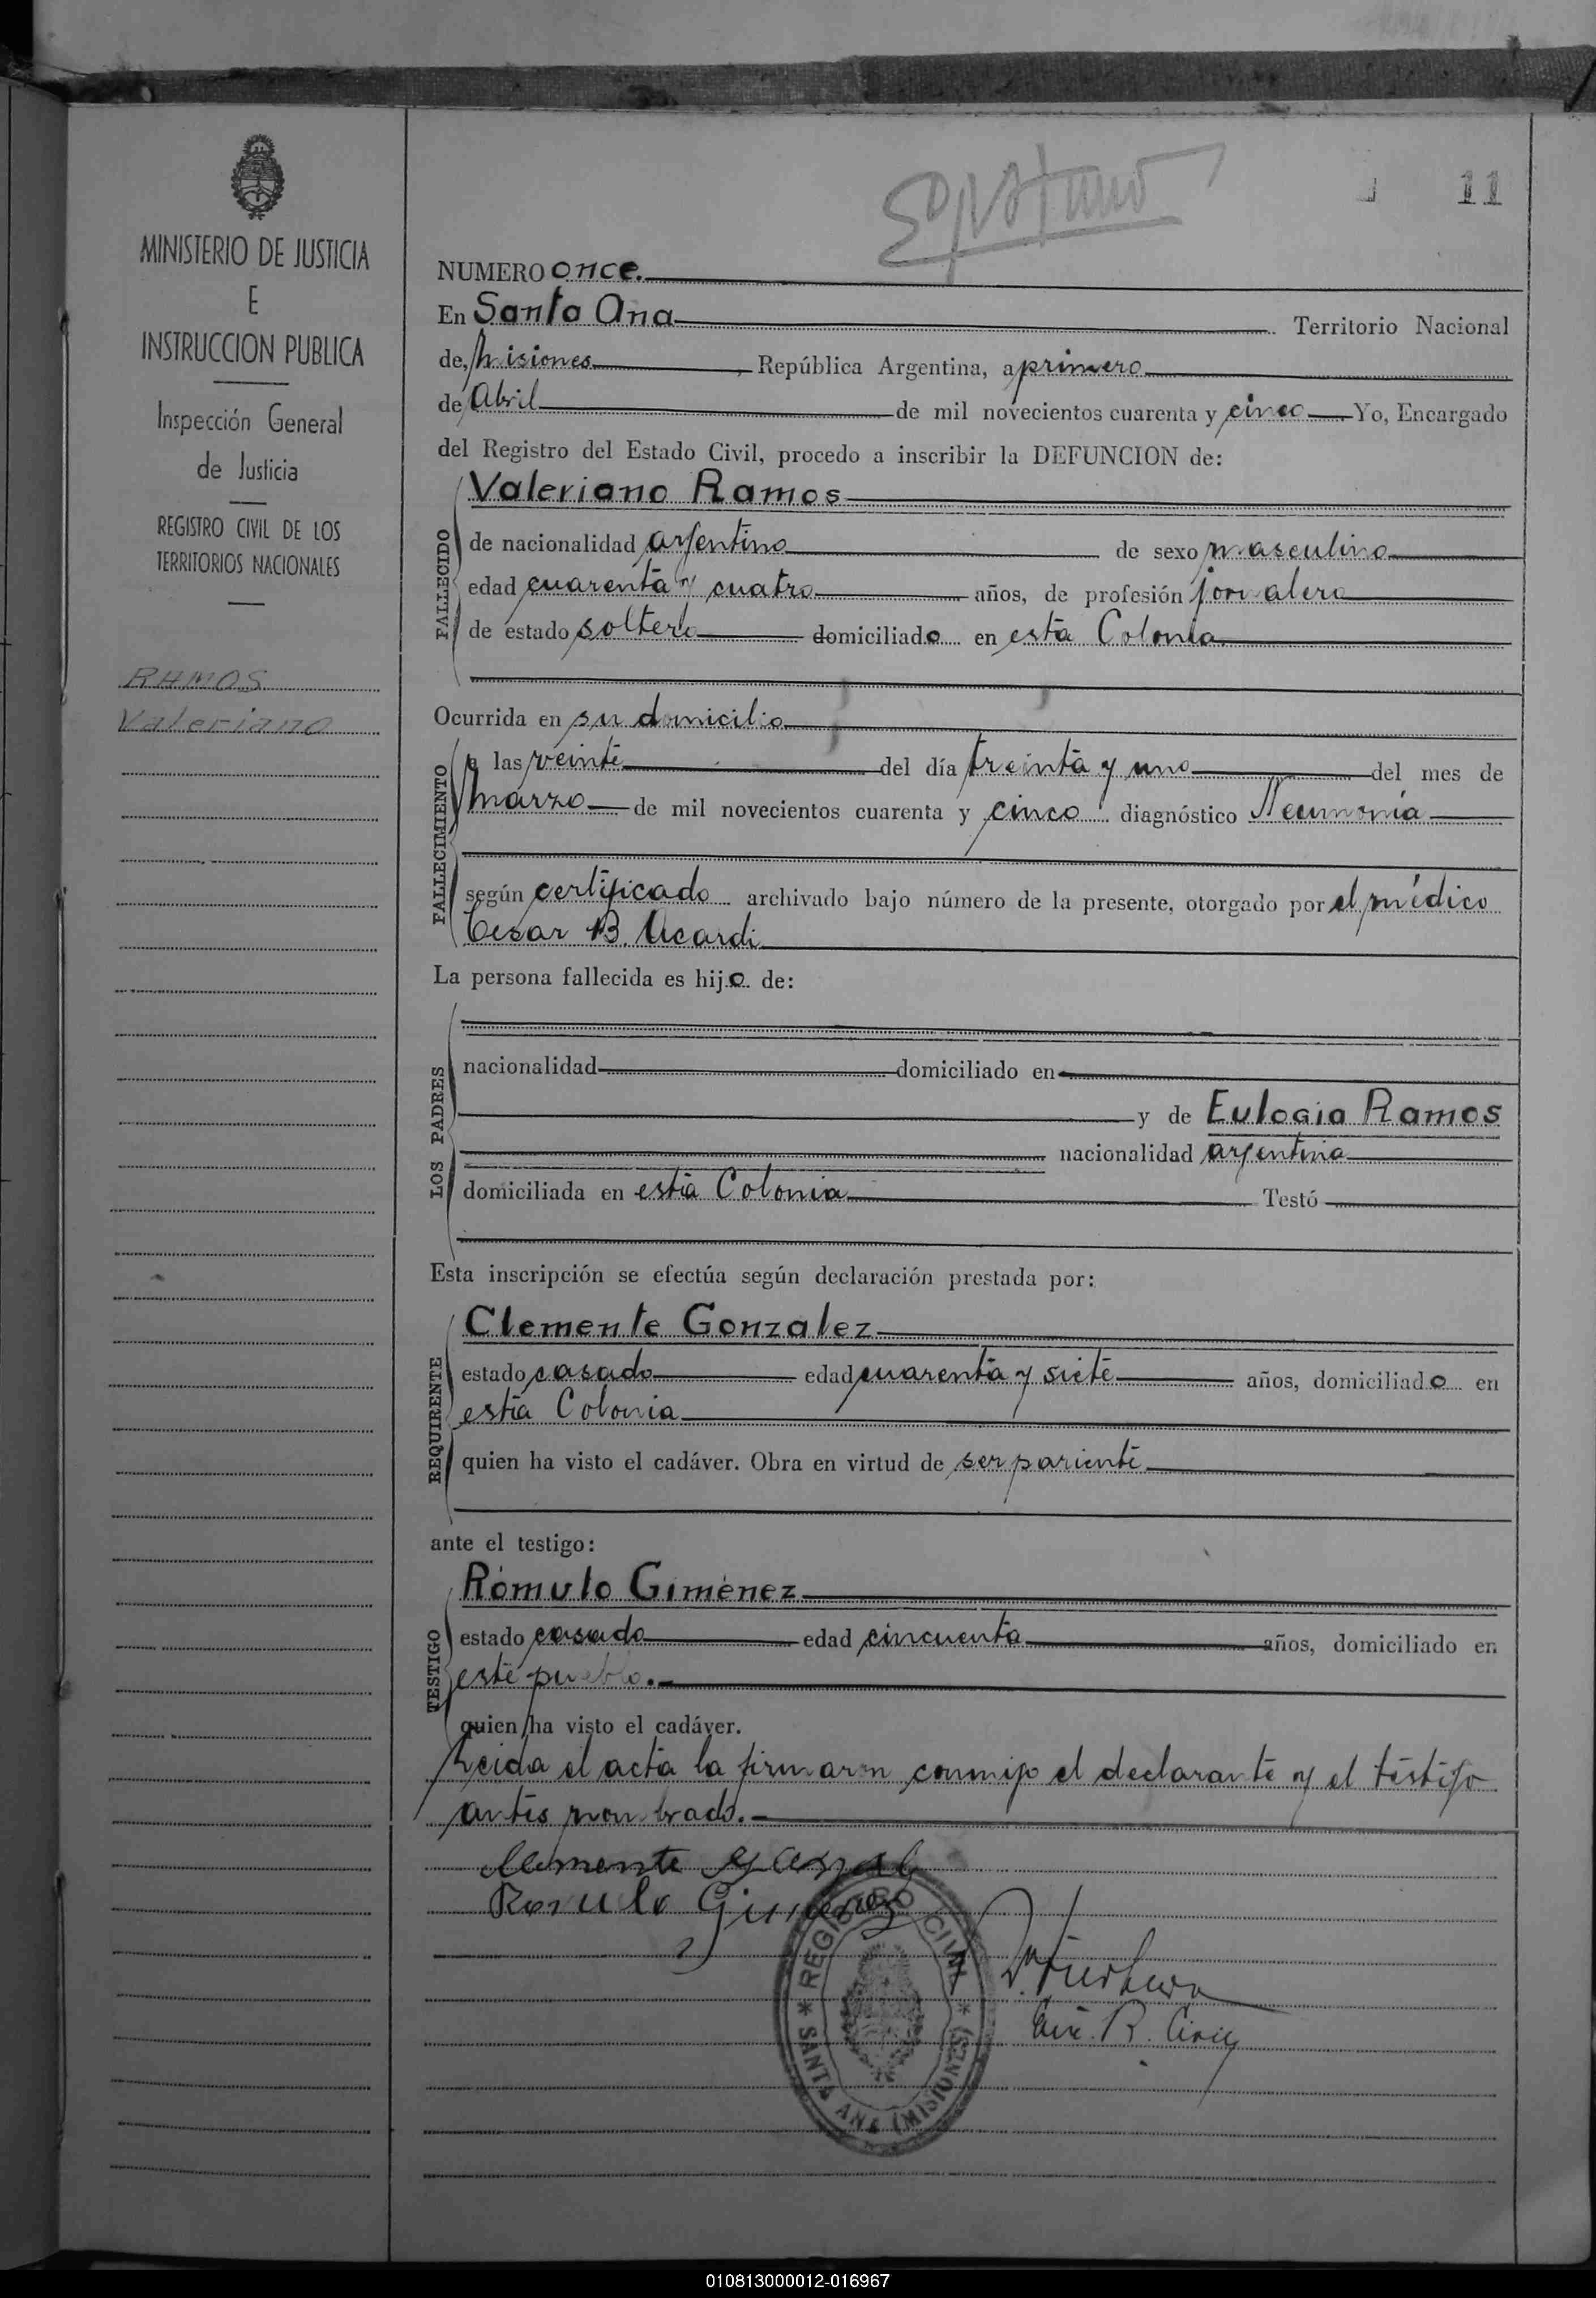 11
MINISTERIO DE JUSTICIA
E
INSTRUCCION PUBLICA
Inspección General
de Justicia
REGISTRO CIVIL DE LOS
TERRITORIOS NACIONALES
RAMOS
Valeriano
NUMERO once.
En Santa Ana Territorio Nacional
de Misiones, República Argentina, a primero
de Abril de mil novecientos cuarenta y cinco Yo, Encargado
del Registro del Estado Civil, procedo a inscribir la DEFUNCION de:
FALLECIDO
Valeriano Ramos
de nacionalidad argentino de sexo masculino
edad cuarenta y cuatro años, de profesión jornalero
de estado soltero domiciliado en esta Colonia
Ocurrida en su domicilio
FALLECIMIENTO
a las veinte del día treinta y uno del mes de
marzo de mil novecientos cuarenta y cinco diagnóstico Neumonía
según certificado archivado bajo número de la presente, otorgado por el médico
Cesar B. Ucardi
La persona fallecida es hijo de:
LOS PADRES
nacionalidad domiciliado en
y de Eulogia Ramos
nacionalidad argentina
domiciliada en esta Colonia Testó
Esta inscripción se efectúa según declaración prestada por:
REQUIRENTE
Clemente Gonzalez
estado casado edad cuarenta y siete años, domiciliado en
esta Colonia
quien ha visto el cadáver. Obra en virtud de ser pariente
ante el testigo:
TESTIGO
Rómulo Giménez
estado casado edad cincuenta años, domiciliado en
este pueblo.
quien ha visto el cadáver.
Leida el acta la firmaron conmigo el declarante y el testigo
antes nombrado.
Clemente
Romulo Gimenez
REGISTRO CIVIL
* SANTA ANA (MISIONES) *
Enc. R. Civil
010813000012-016967